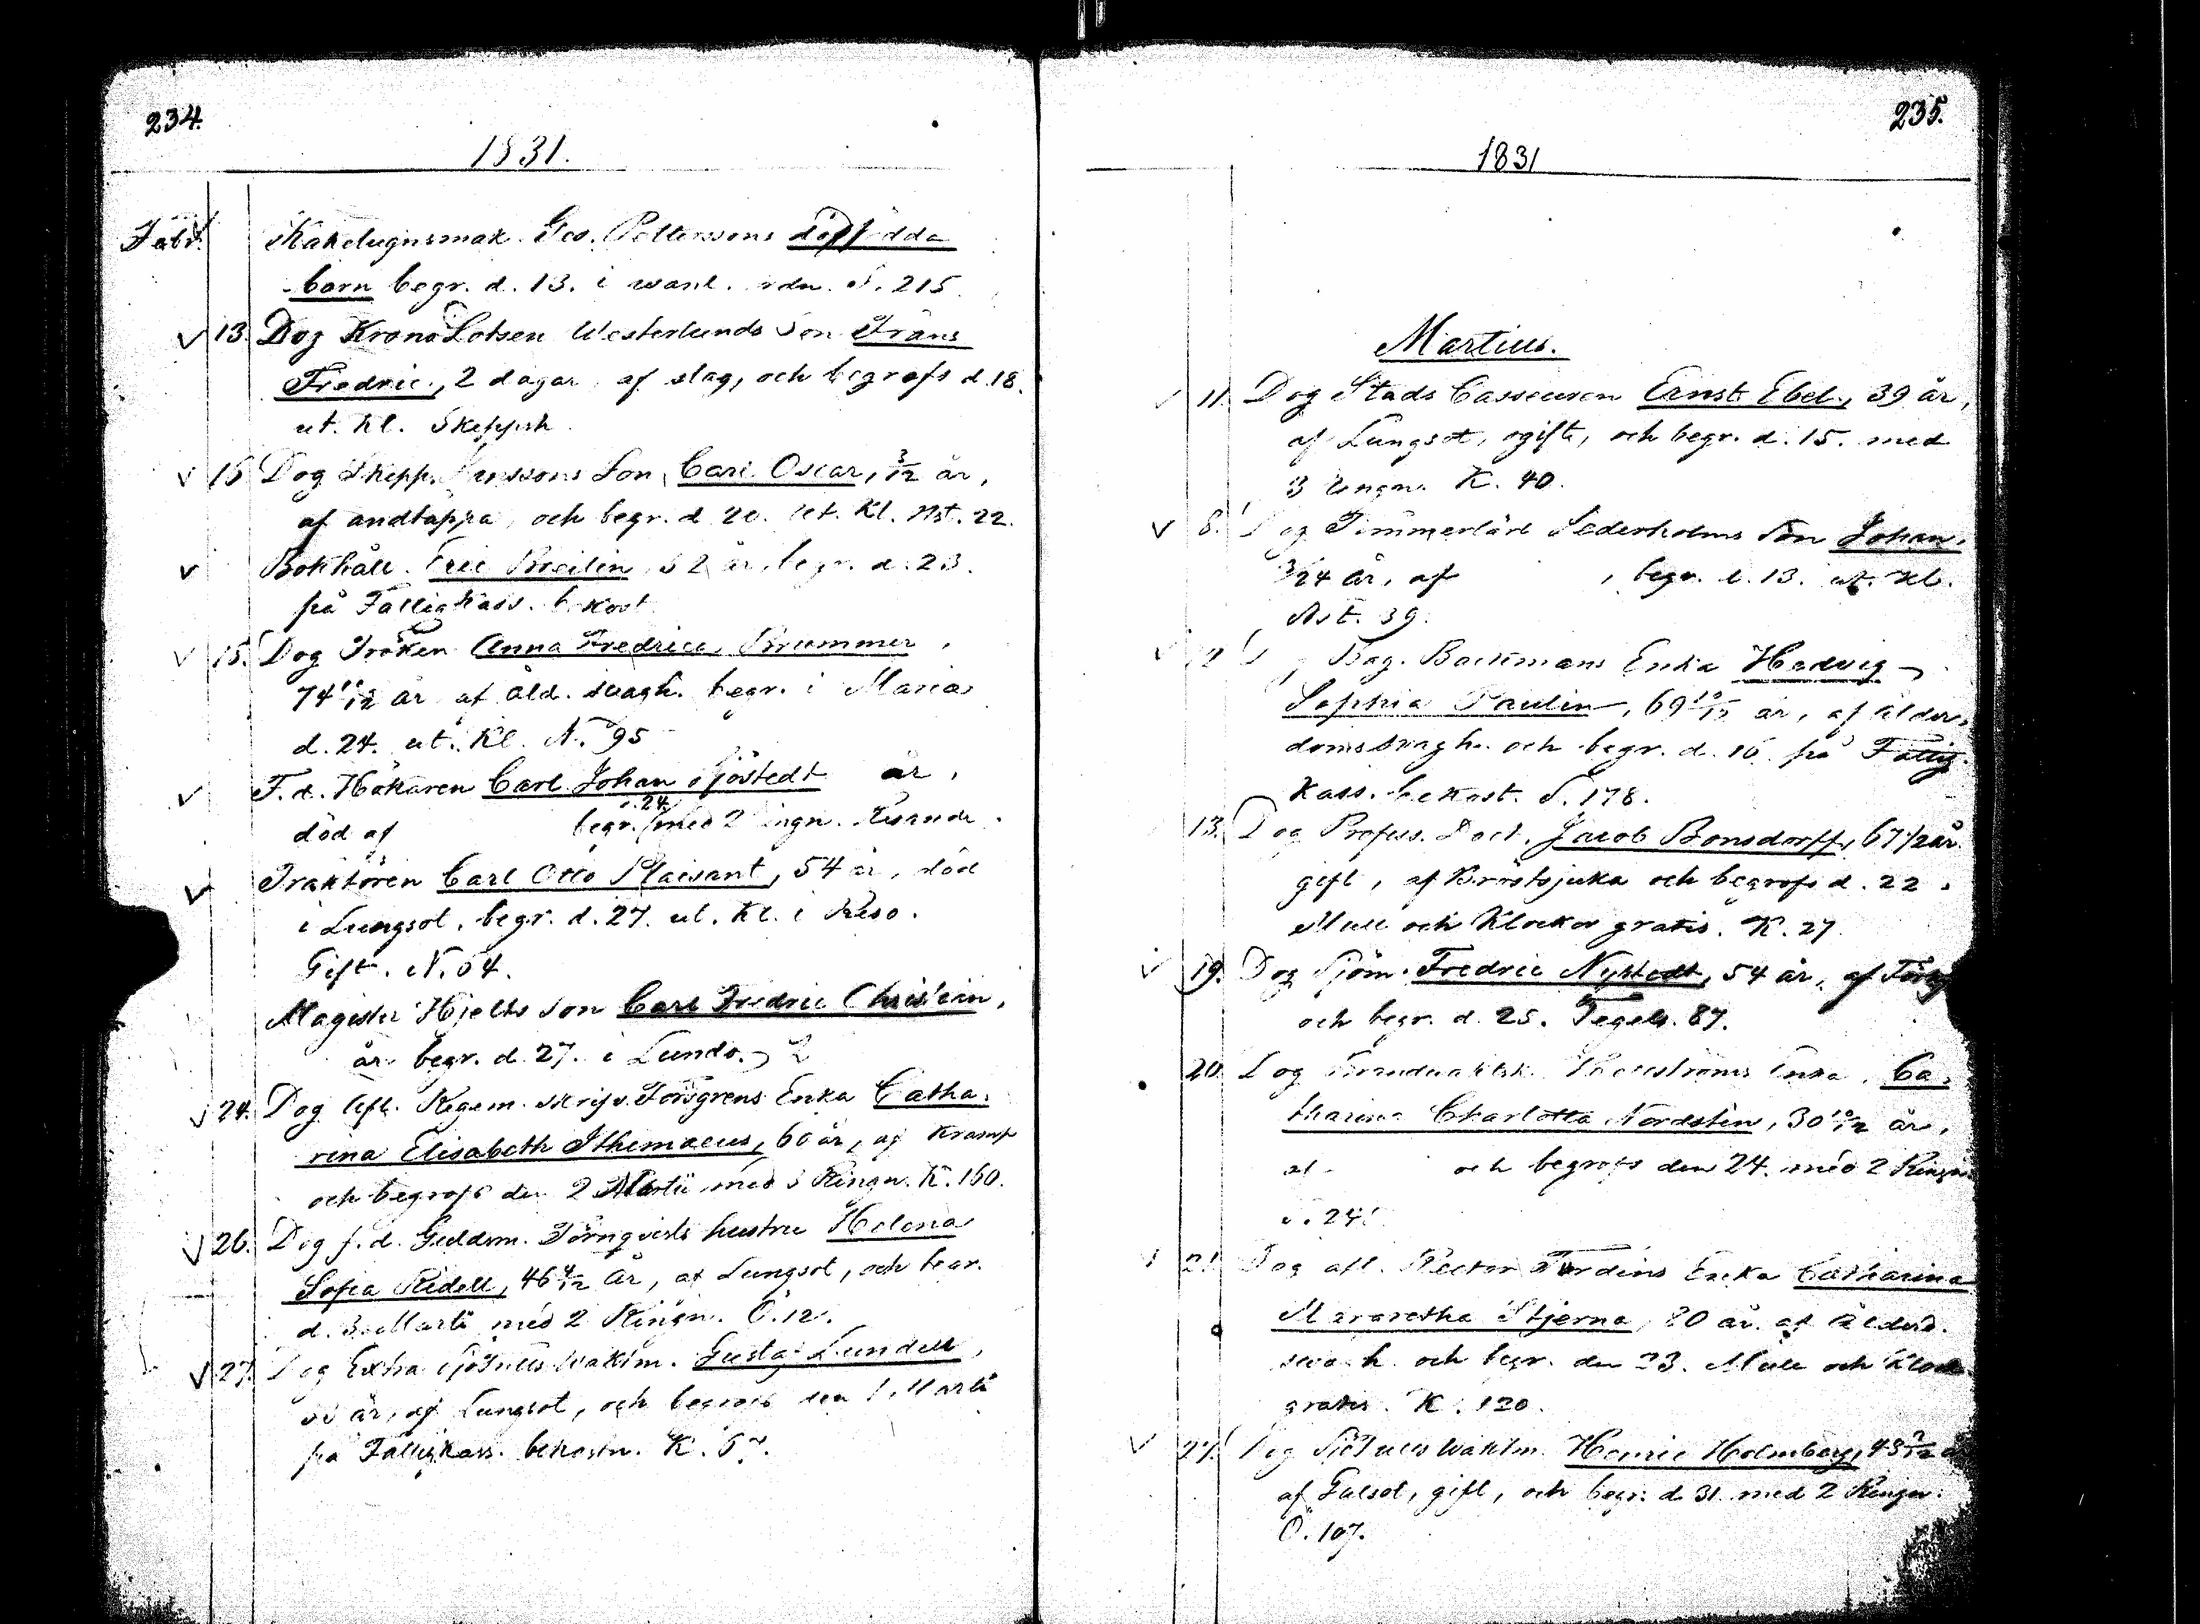 234.
1831.
Febr. Kakelugnsmak. Ges. Petterssons dödfödda
barn begr. d. 13. i wanl. ordn. S. 215
13. Dog KronoLotsen Westerlunds Son Frans
Fredric, 2 dagar, af slag, och begrofs d. 18.
ut. Kl. Skeppsh.
15 Dog Skepp. Janssons Son Carl Oscar, 3/12 år,
af andtäppa, och begr. d. 20. ut. Kl. Nst. 22.
Bokhåll. Eric Breilin, 52 år, begr. d. 23.
på Fattigkass. bekost.
15. Dog Fröken Anna Fredrica Brummer,
74 10/12 år af åld. svagh. begr. i Maria
d. 24. ut. Kl. N. 95
F. d. Hökaren Carl Johan Sjöstedt år,
död af begr. d. 24 med 2 ringn. Resande.
Traktören Carl Otto Plaisant, 54 år, död
i Lungsot, begr. d. 27. ut. Kl. i Reso.
Gift. N. 64.
Magister Hjelts Son Carl Fredric Christein,
år begr. d. 27. i Lundo.
24. Dog Afl. Regem. skrifv. Forsgrens Enka Catha-
rina Elisabeth Ithimaeus, 60 år, af Kramp
och begrofs den 2 Martii med 3 Ringn. K. 160.
26. Dog f. d. Guldsm. Törnqvists hustru Helena
Sofia Ridell, 46 4/12 år, af Lungsot, och begr.
d. 3. Martii med 2 Ringn. Ö. 12.
27. Dog Extra SjöTulls Waktm. Gustaf Lundell,
år, af Lungsot, och begrofs den Martii
på Fattigkass. bekostn. K.
235.
1831
Martius.
11. Dog Stads Casseuren Ernst Ebel, 39 år,
af Lungsot, ogift, och begr. d. 15. med
3 Ringn. K. 40.
8. Dog Timmerkarl Sederholms Son Johan,
3/24 år, af , begr. d. 13. ut. Kl.
Nst. 39.
Dog Bag. Backmans Enka Hedvig
Sophia Paulin, 69 10/12 år, af ålder-
domssvagh. och begr. d. 16 på Fattig-
Kass. bekost. S. 178.
13. Dog Profess. Doct. Jacob Bonsdorff, 67 1/2 år
gift, af Bröstsjuka och begrofs d. 22.
Mull och Klockor gratis. K. 27.
19. Dog Sjöm. Fredric Nystedt, 54 år, af
och begr. d. 25. Tegels. 87.
20. Dog Brandvaktsk. Enka, Ca-
tharina Charlotta Nordstén, 30 10/12 år,
af och begrofs den 24. med 2 Ringn.
21. Dog afl. Rector Enka Catharina
Margaretha Stjerna, 80 år, af ålderd.
svagh. och begr. den 23. Mull och Klock.
gratis. K. 120.
27. Dog SjöTulls Waktm. Henric Holmberg, 43
af Gulsot, gift, och begr. d. 31 med 2 Ringn.
Ö. 107.